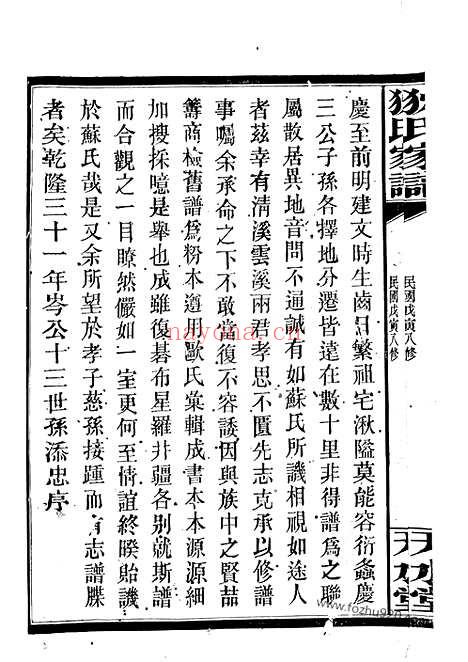 狄氏家譜
民國戊寅八修
民國戊寅八修
天水堂
慶至前明建文時生齒日繁祖宅湫隘莫能容衍螽慶
三公子孫各擇地分遷皆遠在數十里非得譜爲之聯
屬散居異地音問不通誠有如蘇氏所譏相視如途人
者玆幸有清溪雲溪兩君孝思不匱先志克承以修譜
事囑余承命之下不敢辭復不容諉因與族中之賢喆
籌商檢舊譜爲粉本遵用歐氏彙輯成書本本源源細
加搜採噫是舉也成雖復碁布星羅井疆各別就斯譜
而合觀之一目瞭然儼如一室更何至情誼終暌貽譏
於蘇氏哉是又余所望於孝子慈孫接踵而有志譜牒
者矣乾隆三十一年岑公十三世孫添忠序
nayona.cn
www.fozhu920.com